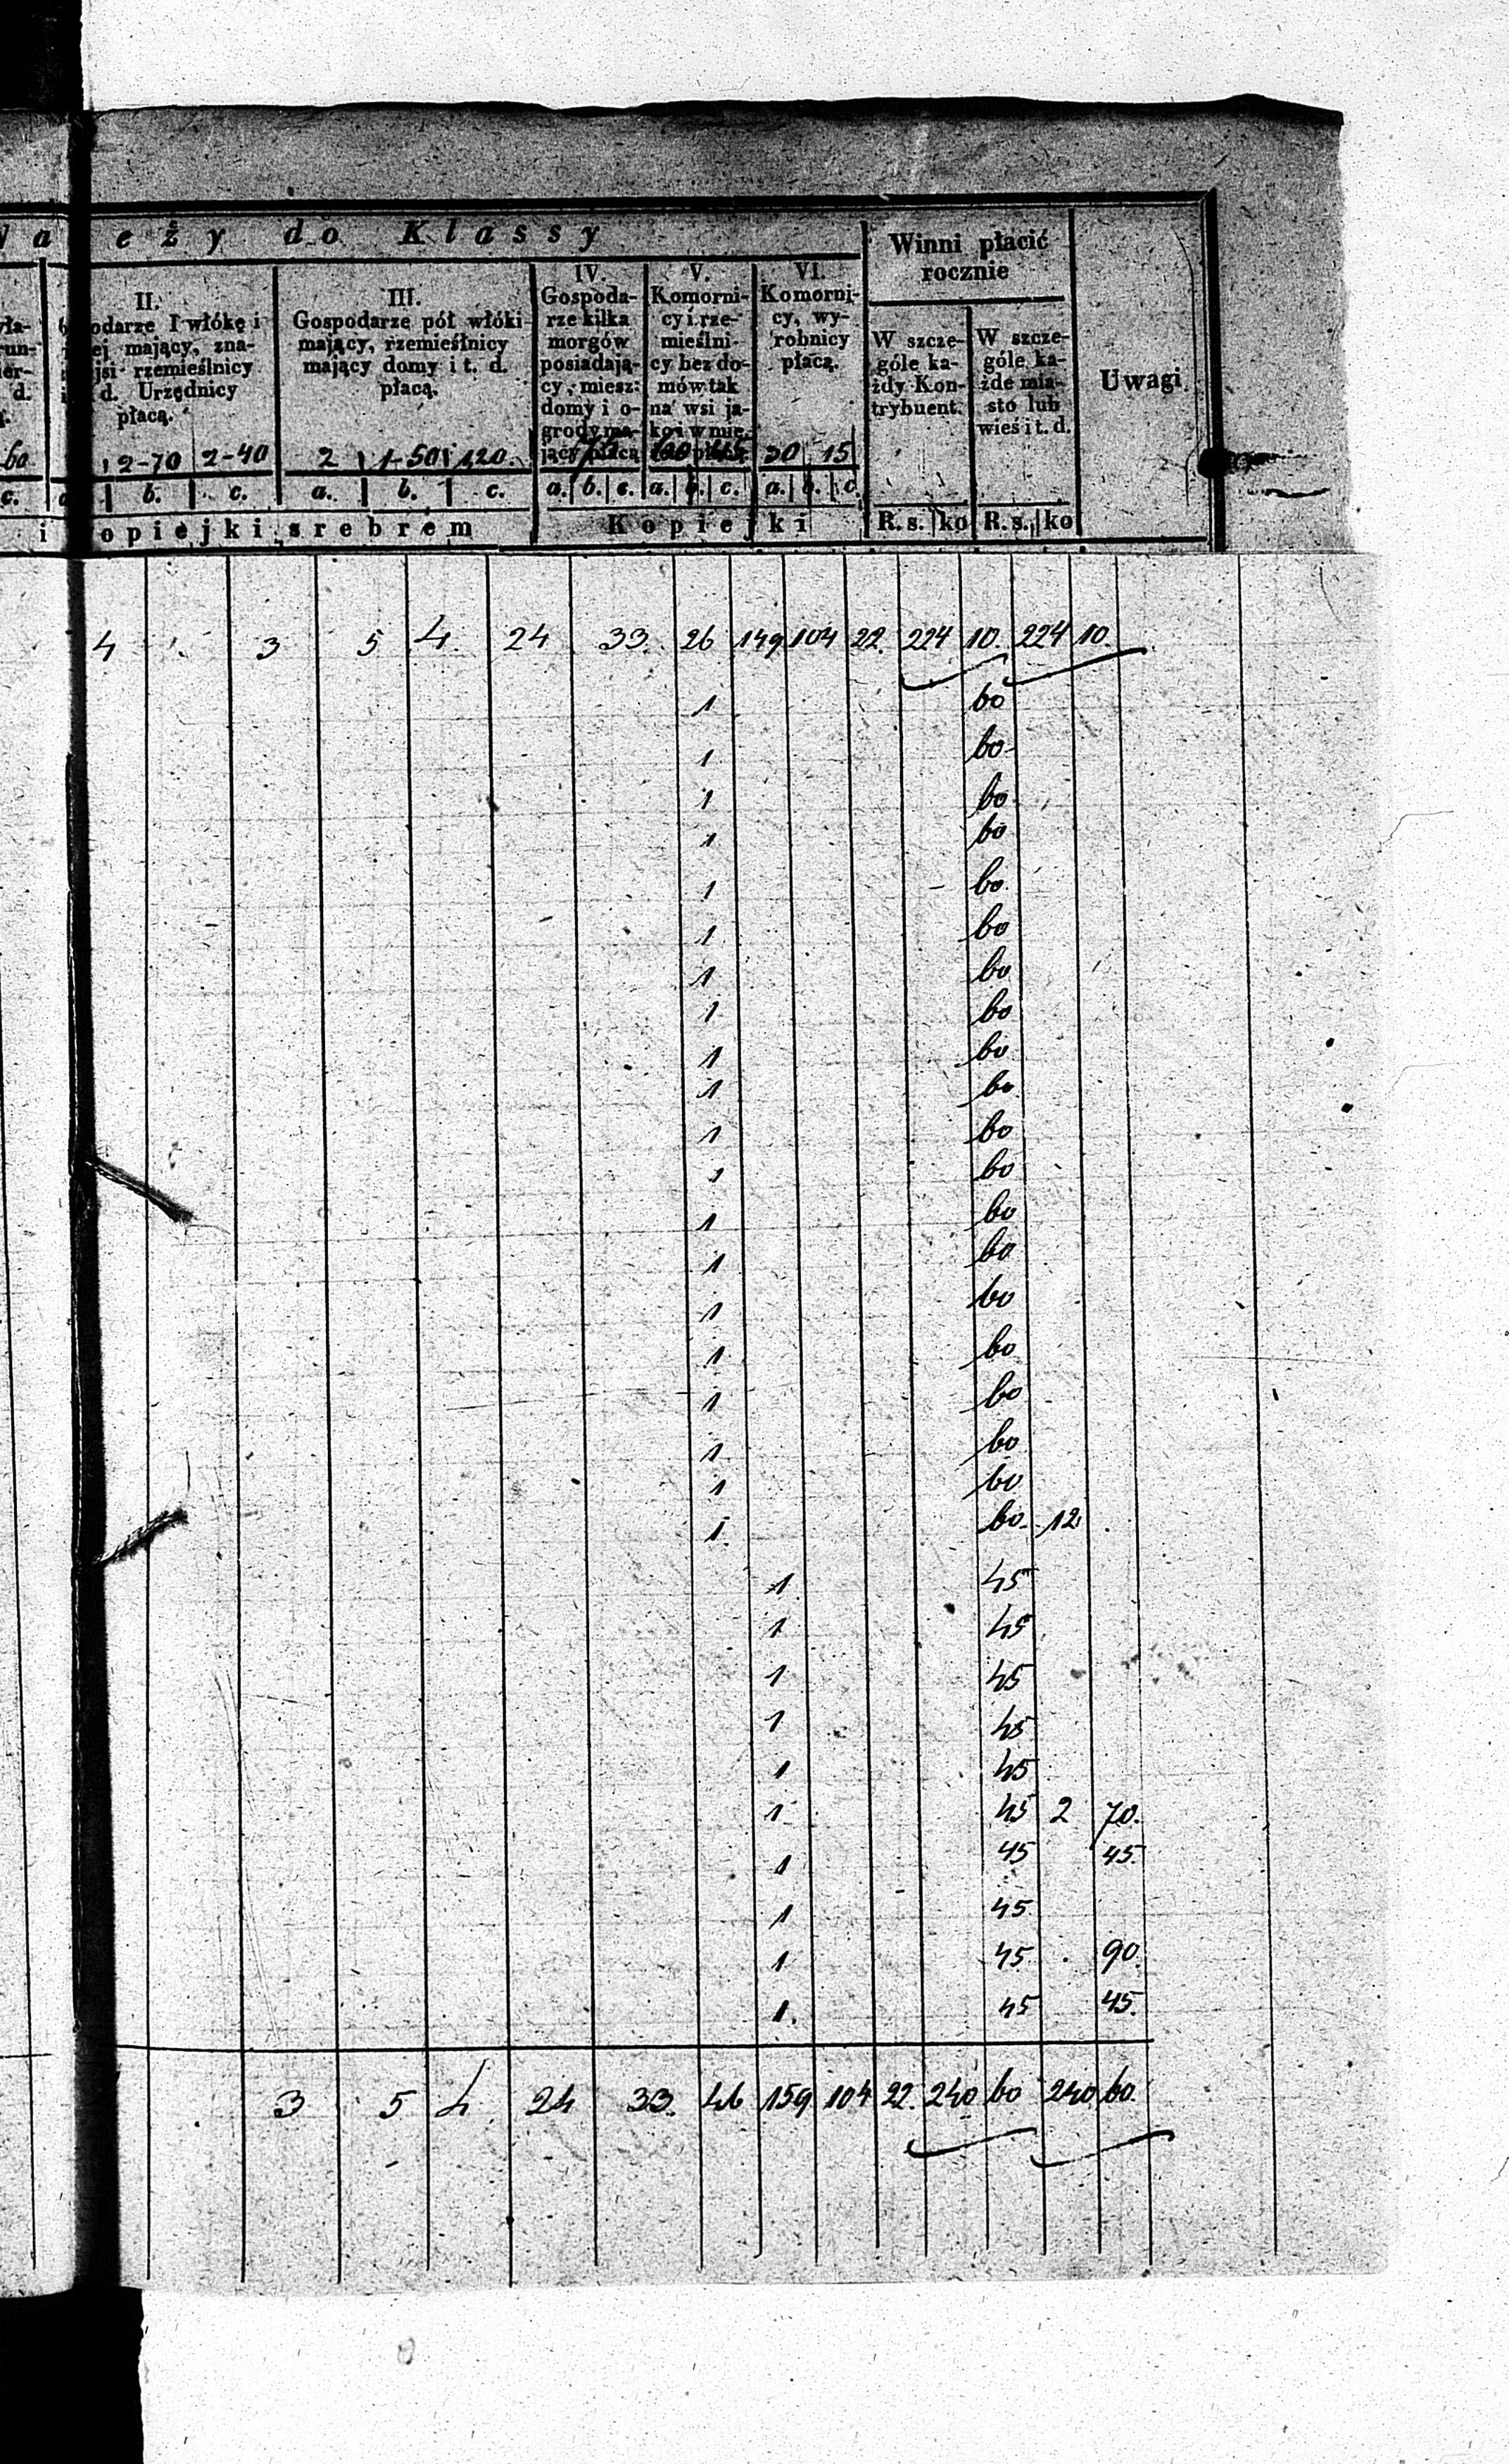 eży do Klassy
Winni płacić rocznie
Uwagi
II.
odarze I włókę i
ej mający, zna-
jsi rzemieślnicy
d. Urzędnicy
płacą.
2-70 2-40
b. c.
III.
Gospodarze pół włóki
mający, rzemieślnicy
mający domy i t. d.
płacą.
2 1-50 1,20.
a. b. c.
opiejki srebrem
IV.
Gospoda-
rze kilka
morgów
posiadają-
cy, miesz:
domy i o-
grody ma-
jący płacą
a. b. c.
V.
Komorni-
cy i rze-
mieślni-
cy bez do-
mów tak
na wsi ja-
ko i w mie.
a. b. c.
VI.
Komorni-
cy, wy-
robnicy
płacą.
30 15
a. b. c.
Kopiejki
W szcze-
góle ka-
żdy Kon-
trybuent.
R. s. ko
W szcze-
góle ka-
żde mia-
sto lub
wieś i t. d.
R. s. ko
4 3 5 4 24 33. 26 149 104 22. 224 10. 224 10.
1 60
1 60
1 60
1 60
1 60
1 60
1 60
1 60
1 60
1 60
1 60
1 60
1 60
1 60
1 60
1 60
1 60
1 60
1 60
1 60 12
1 45
1 45
1 45
1 45
1 45
1 45 2 70.
1 45 45.
1 45
1 45 90.
1. 45 45.
3 5 4 24 33. 46 159 104 22. 240 60 240 60.